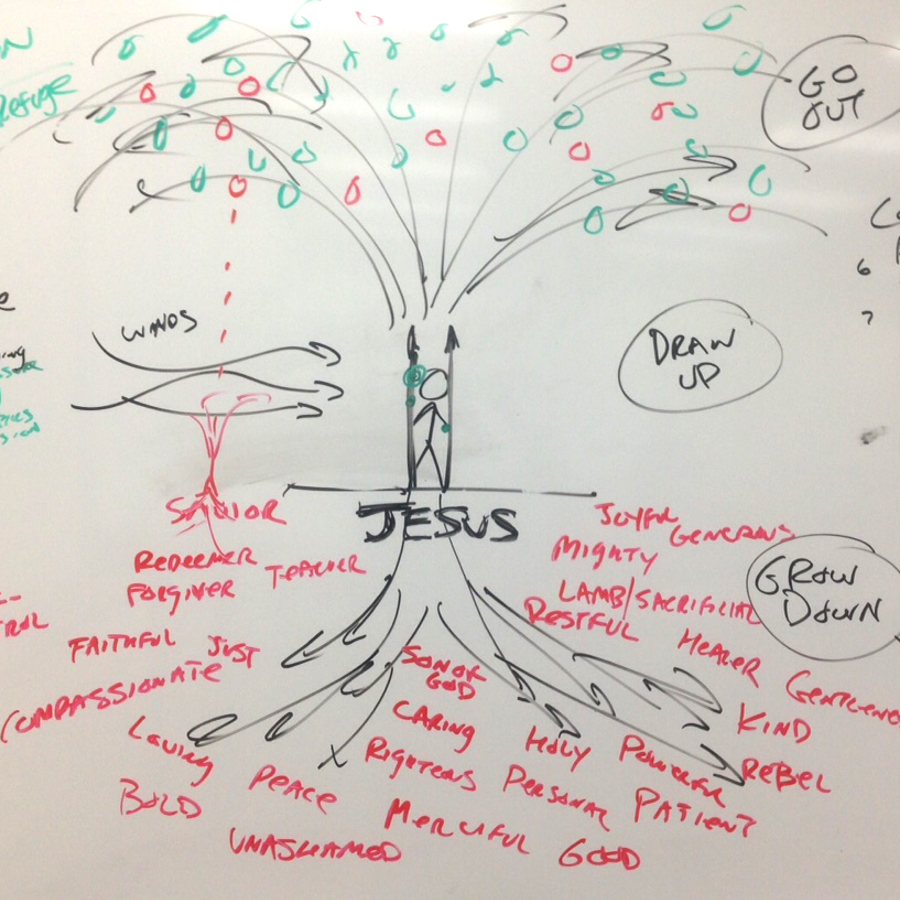 Refuge
GO
OUT
6
7
WINDS
DRAW
UP
JESUS
SAVIOR
REDEEMER
FORGIVER
TEACHER
FAITHFUL
JUST
COMPASSIONATE
LOVING
BOLD
PEACE
UNASHAMED
SON OF
GOD
CARING
RIGHTEOUS
MERCIFUL
HOLY
PERSONAL
GOOD
POWERFUL
PATIENT
JOYFUL
GENEROUS
MIGHTY
LAMB/SACRIFICIAL
RESTFUL
HEALER
KIND
REBEL
GROW
DOWN